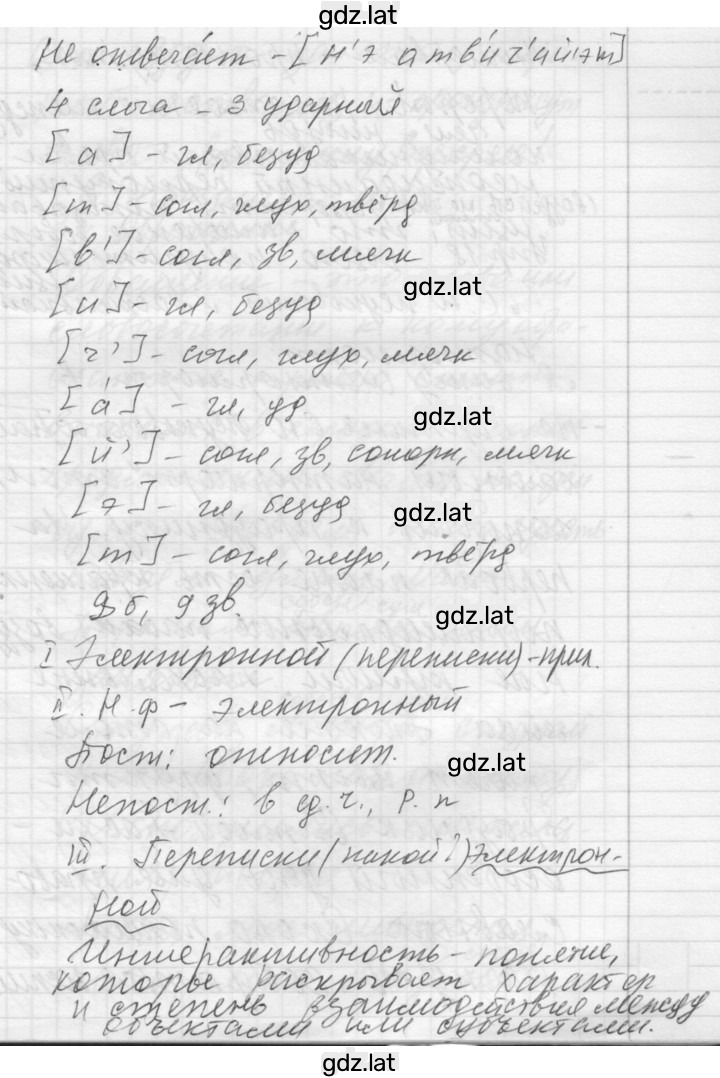 gdz.lat
Не отвеча́ет - [н'э атв'ич'а́й'эт]
4 слога - 3 ударный
[а] - гл, безуд
[т] - согл, глух, твёрд
[в'] - согл, зв, мягк
gdz.lat
[и] - гл, безуд
[ч'] - согл, глух, мягк
[а́] - гл, уд
gdz.lat
[й'] - согл, зв, сонорн, мягк
[э] - гл, безуд
gdz.lat
[т] - согл, глух, твёрд
9 б, 9 зв.
gdz.lat
I Электронной (переписки) - прил.
II. Н.ф - электронный
Пост: относит.
gdz.lat
Непост.: в ед.ч., Р.п
III. Переписки (какой?) электрон-
ной
Интерактивность - понятие,
которые раскрывает характер
и степень взаимодействия между
объектами или субъектами.
gdz.lat